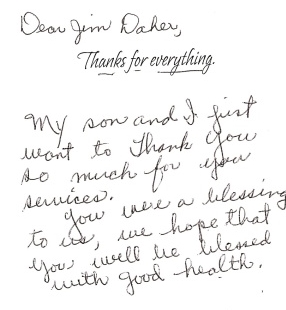 Dear Jim Daher,
Thanks for everything.
My son and I just
want to Thank you
so much for your
services.
You were a blessing
to us, we hope that
you will be blessed
with good health.